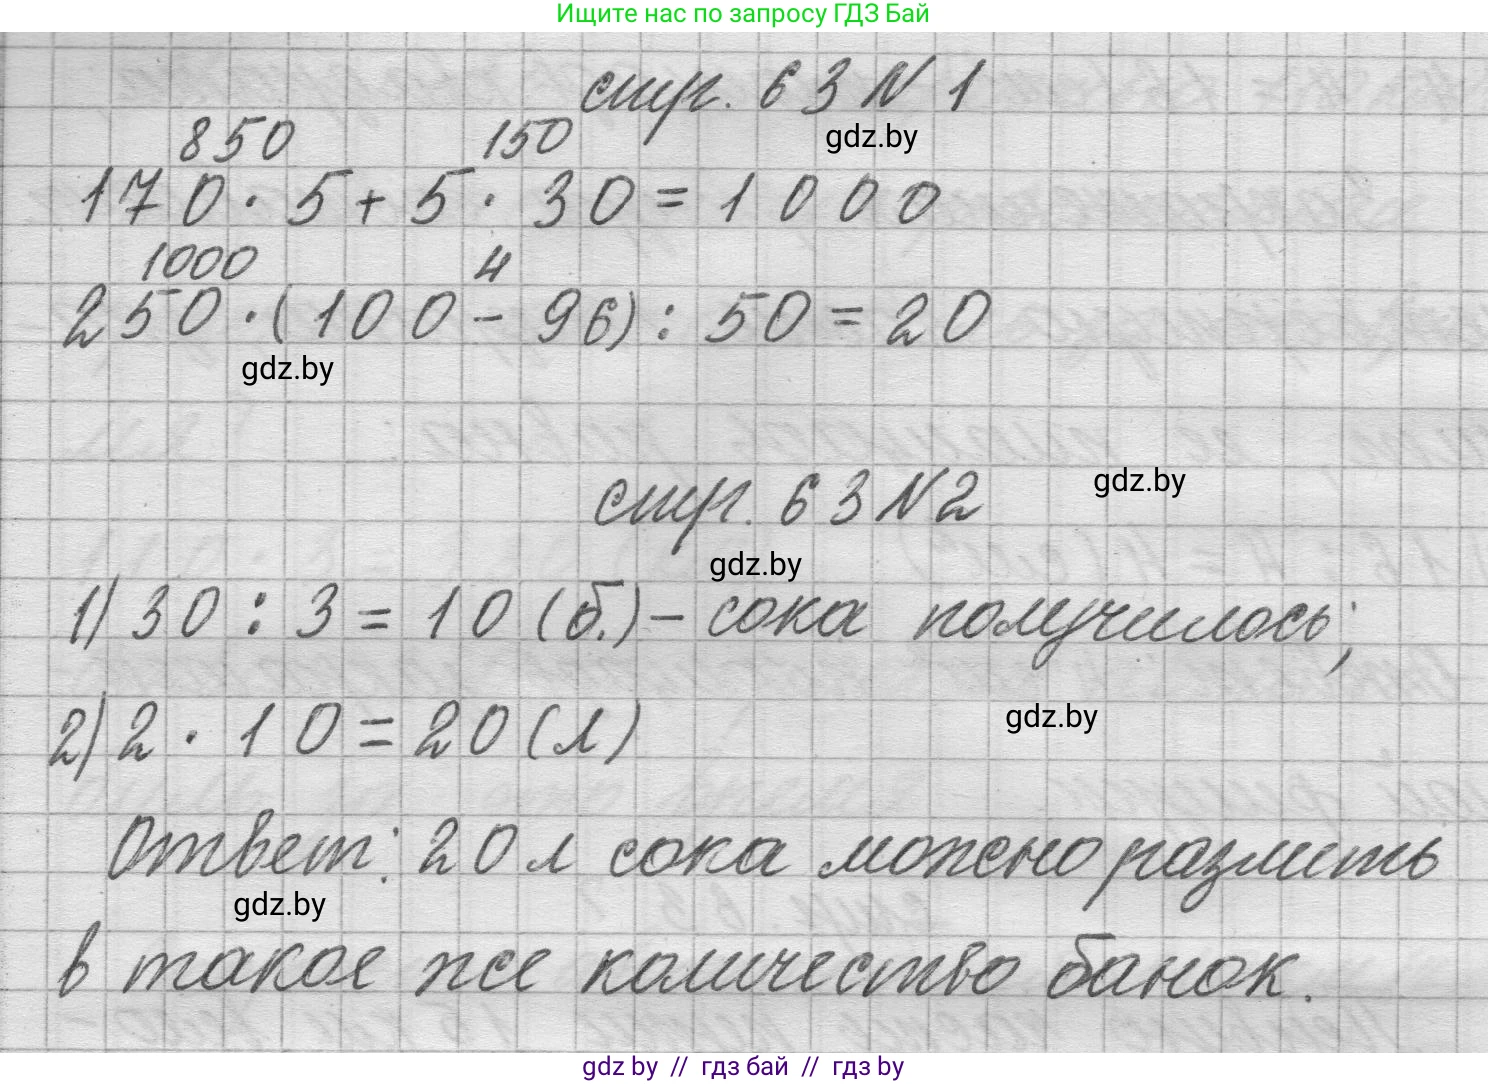 Ищите нас по запросу ГДЗ Бай
стр. 63 N 1
gdz.by
850 150
170 · 5 + 5 · 30 = 1000
1000 4
250 · (100 - 96) : 50 = 20
gdz.by
стр. 63 N 2
gdz.by
gdz.by
1) 30 : 3 = 10 (б.) – сока получилось;
2) 2 · 10 = 20 (л)
gdz.by
Ответ: 20 л сока можно разлить
gdz.by
в такое же количество банок.
gdz by // гдз бай // гдз by